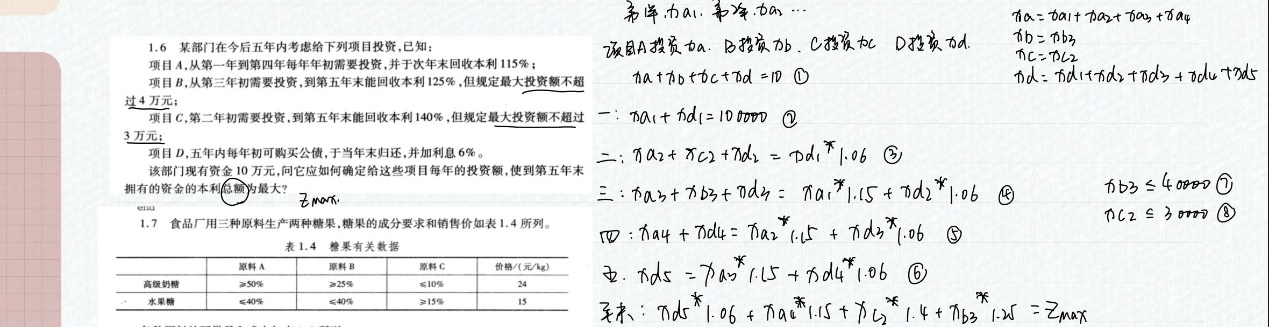 1.6 某部门在今后五年内考虑给下列项目投资,已知:
项目 A,从第一年到第四年每年年初需要投资,并于次年末回收本利 115%;
项目 B,从第三年初需要投资,到第五年末能回收本利 125%,但规定最大投资额不超
过 4 万元;
项目 C,第二年初需要投资,到第五年末能回收本利 140%,但规定最大投资额不超过
3 万元;
项目 D,五年内每年初可购买公债,于当年末归还,并加利息 6%。
该部门现有资金 10 万元,问它应如何确定给这些项目每年的投资额,使到第五年末
拥有的资金的本利总额为最大?
Zmax.
end
1.7 食品厂用三种原料生产两种糖果,糖果的成分要求和销售价如表 1.4 所列。
表 1.4 糖果有关数据
原料 A 原料 B 原料 C 价格/(元/kg)
高级奶糖 ≥50% ≥25% ≤10% 24
水果糖 ≤40% ≤40% ≥15% 15
xa1. xa2 …
项目A投资xa. B投资xb. C投资xc D投资xd.
xa+xb+xc+xd=10 ①
一: xa1+xd1=100000 ②
二: xa2+xc2+xd2 = xd1*1.06 ③
三: xa3+xb3+xd3 = xa1*1.15 + xd2*1.06 ④
四: xa4+xd4 = xa2*1.15 + xd3*1.06 ⑤
五. xd5 = xa3*1.15 + xd4*1.06 ⑥
: xd5*1.06 + xa4*1.15 + xc2*1.4 + xb3*1.25 = Zmax
xa=xa1+xa2+xa3+xa4
xb=xb3
xc=xc2
xd=xd1+xd2+xd3+xd4+xd5
xb3 ≤ 40000 ⑦
xc2 ≤ 30000 ⑧